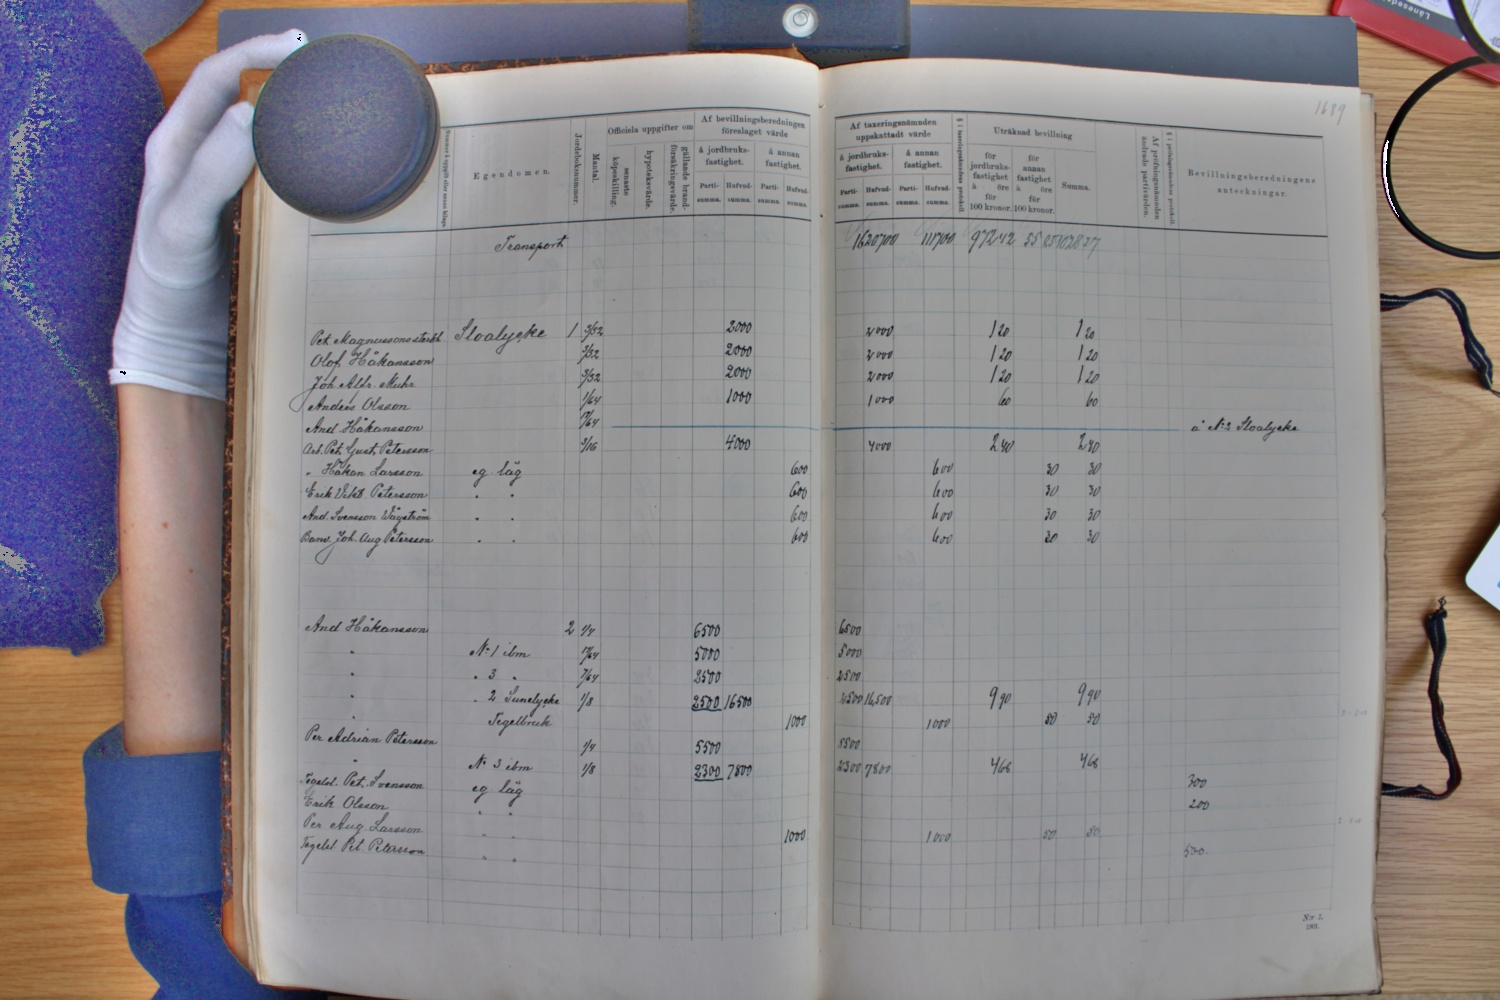 1689
Egendomen.
Jordeboksnummer.
Mantal.
Officiela uppgifter om
senaste köpeskilling.
hypoteksvärde.
gällande brandförsäkringsvärde.
Af bevillningsberedningen föreslaget värde
å jordbruksfastighet.
å annan fastighet.
Partisumma.
Hufvudsumma.
Partisumma.
Hufvudsumma.
Af taxeringsnämnden uppskattadt värde
å jordbruksfastighet.
å annan fastighet.
Partisumma.
Hufvudsumma.
Partisumma.
Hufvudsumma.
§ i taxeringsnämndens protokoll.
Uträknad bevillning
för jordbruksfastighet à öre för 100 kronor.
för annan fastighet à öre för 100 kronor.
Summa.
Af pröfningsnämnden ändrade partivärden.
§ i pröfningsnämndens protokoll.
Bevillningsberedningens anteckningar.
Transport 1620700 111700 97242
Pet. Magnussons sterbh Sloalycke 1 3/32 2000 2000 1 20 1 20
Olof Håkansson 3/32 2000 2000 1 20 1 20
Joh. Aldr. Muhr 3/32 2000 2000 1 20 1 20
Anders Olsson 1/64 1000 1000 60 60
And. Håkansson /64 å N:2 Sloalycke
Arb. Pet. Gust. Petersson 3/16 4000 4000 2 40 2 40
" Håkan Larsson eg läg 600 600 30 30
Erik Petersson " " 600 600 30 30
And. Svensson Wågström " " 600 600 30 30
Banv. Joh. Aug Petersson " " 600 600 30 30
And Håkansson 2 1/4 6500 6500
" N:1 ibm /64 5000 5000
" " 3 " 7/64 2500 2500
" " 2 Sunelycke 1/8 2500 16500 2500 16,500 9 90 9 90
" Tegelbruk 1000 1000 50 50
Per Adrian Petersson 1/4 5500 5500
" N:3 ibm 1/8 2300 7800 2300 7800 4 68 4 68
Tegelsl. Pet. Svensson eg läg 300
Erik Olsson " " 200
Per Aug. Larsson " " 1000 1000 50 50
Tegelsl Pet. Petersson " " 500.
N:r 7.